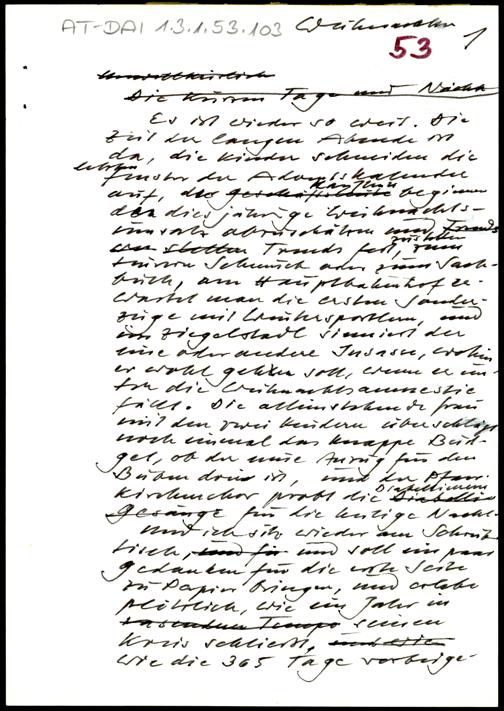 AT-DAI 1.3.1.53.103 Weihnachten
53 1
Unwillkürlich
Die kurzen Tage und Nächte
Es ist wieder so weit. Die
Zeit der langen Abende ist
da, die Kinder schneiden die
letzten
Fenster der Adventskalender
auf, die Geschäftsleute beginnen
Kaufleute
den diesjährige Weihnachts-
umsatz abzuschätzen und Trends
stellen Trends fest, zum
teuren Schmuck oder zum Sach-
buch, am Hauptbahnhof er-
wartet man die ersten Sonder-
züge mit Wintersportlern, und
im Ziegelstadl sinniert der
eine oder andere Insasse, wohin
er wohl gehen soll, wenn er un-
ter die Weihnachtsamnestie
fällt. Die alleinstehende Frau
mit den zwei Kindern überschlägt
noch einmal das knappe Bud-
get, ob der neue Anzug für den
Buben drin ist, und der Pfarr-
kirchenchor probt die
Gesänge für die heilige Nacht.
Und ich sitz wieder am Schreib-
tisch, und für und soll ein paar
Gedanken für die erste Seite
zu Papier bringen, und erlebe
plötzlich, wie ein Jahr in
rasendem Tempo seinen
Kreis schließt, und wie
wie die 365 Tage vorbeige-